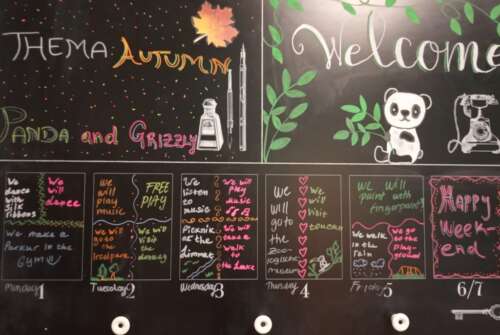 THEMA AUTUMN
Welcome
PANDA and GRIZZLY
We
dance
with
silk
ribbons
We
will
dance
We make a
Parkur in the
Gym
Monday 1
We
will
play
music
FREE
PLAY
We will
go to the
We will
visit the
Tuesday 2
We
listen
to
music
We will
Play
Music
Picknik
at the
We will
take a
walk to
the Lake
Wednesday 3
We
will
go to
the
zoo-
logische
museum
We
will
visit
toucan
Thursday 4
WE Will
paint with
fingerpaint
We walk
in the
rain
We go to
the play-
ground
Friday 5
Happy
Week-
end
6/7